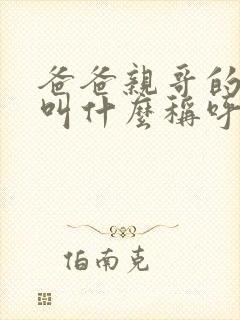 爸爸親哥的
叫什麼稱呼
伯南克